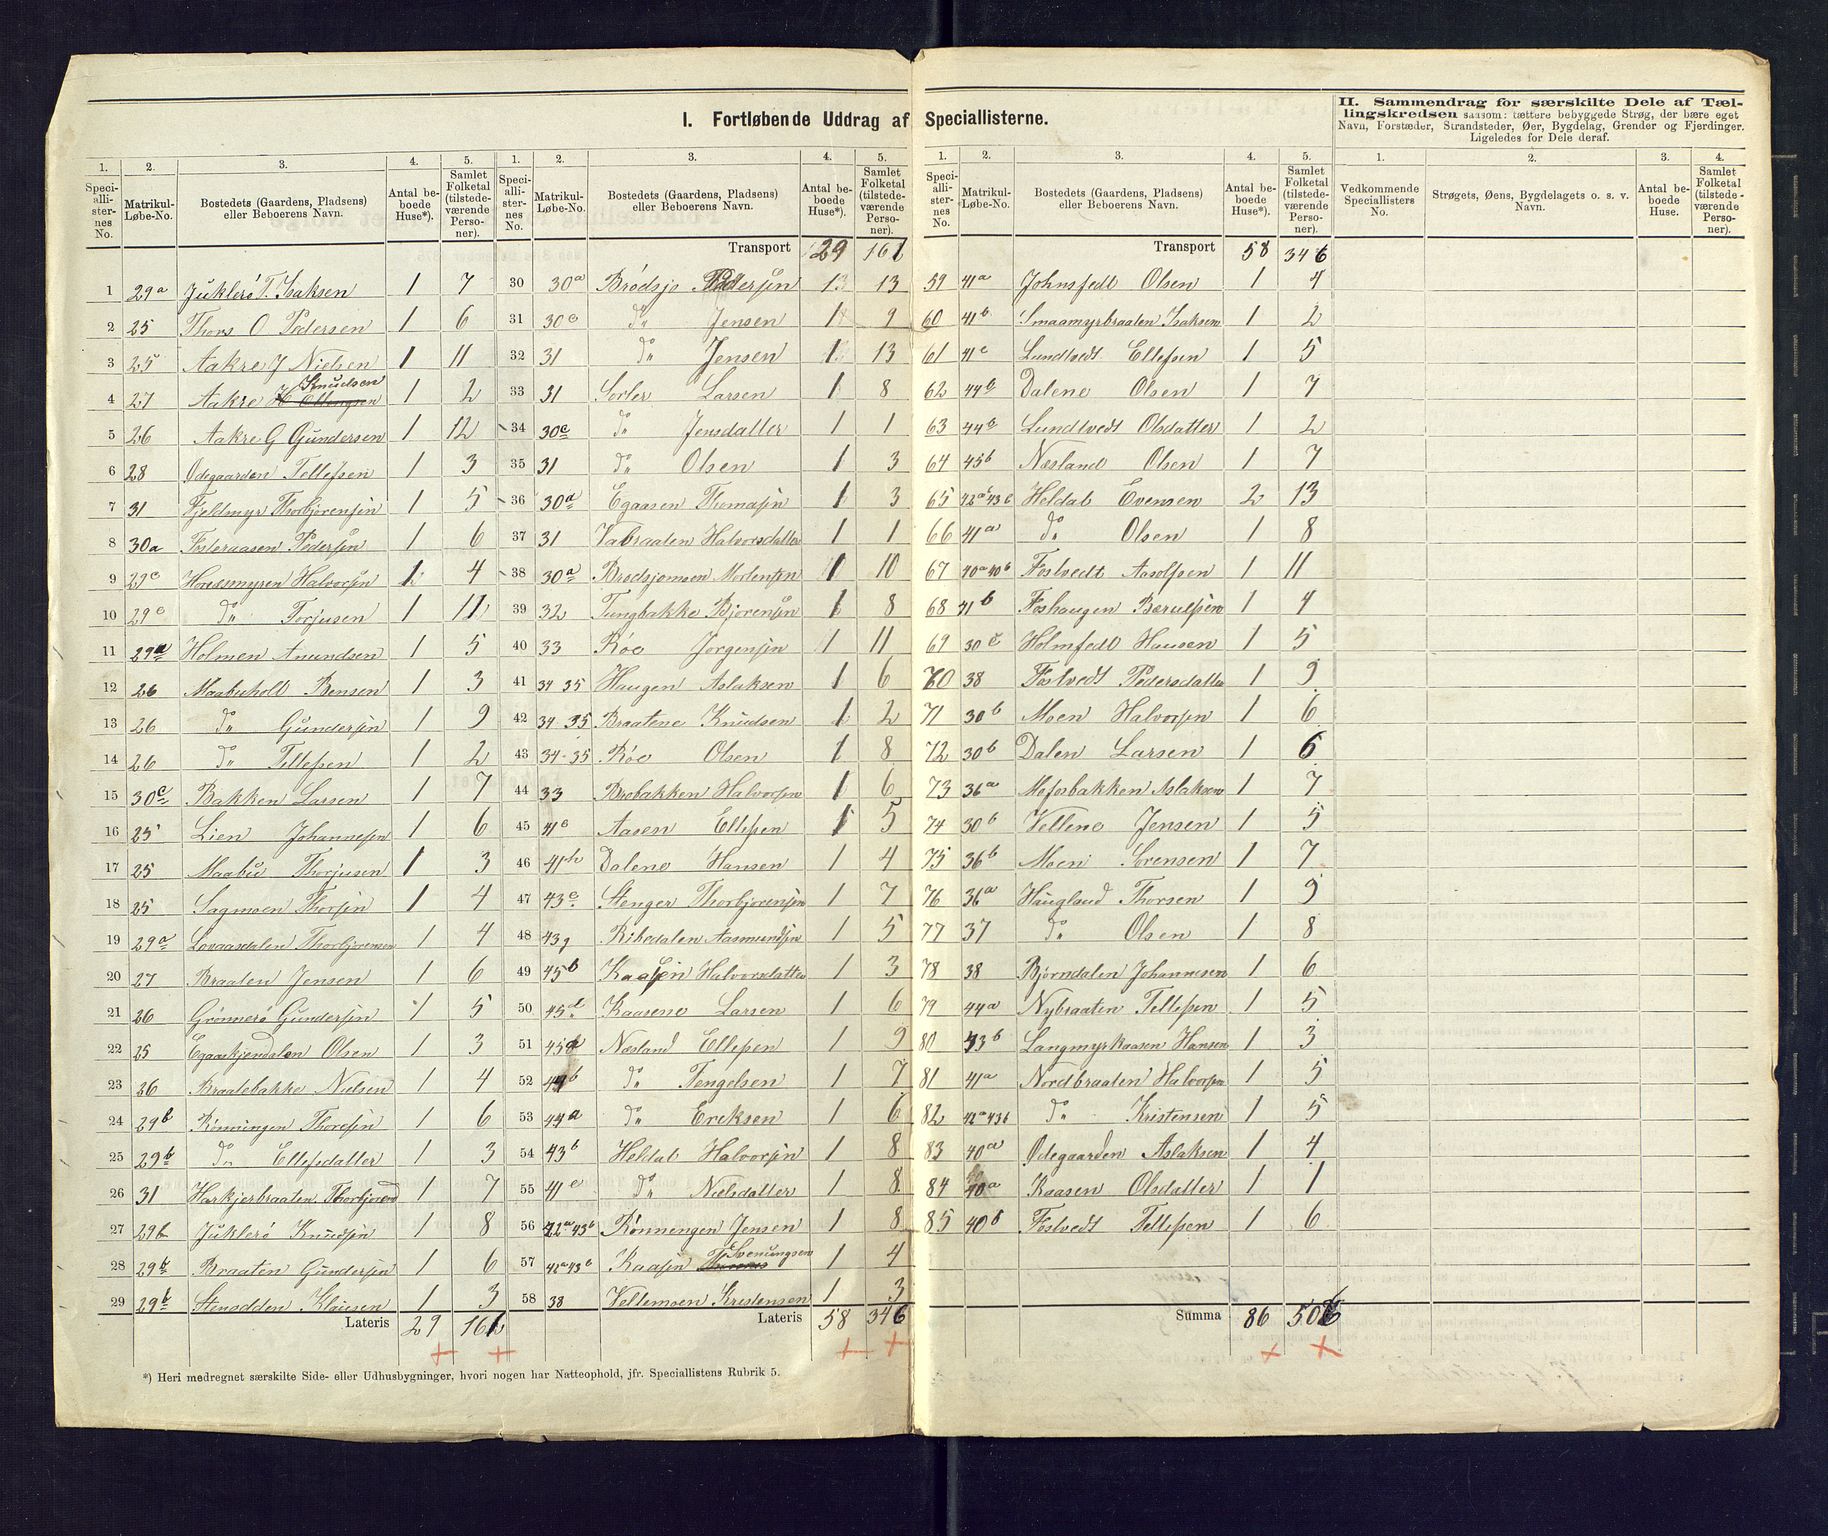 I. Fortløbende Uddrag af Speciallisterne.
II. Sammendrag for særskilte Dele af Tæl-
lingskredsen saasom: tættere bebyggede Strøg, der bære eget
Navn, Forstæder, Strandsteder, Øer, Bygdelag, Grender og Fjerdinger.
Ligeledes for Dele deraf.
1. 2. 3. 4. 5.
Speci-allister-nes No. Matrikul-Løbe-No. Bostedets (Gaardens, Pladsens) eller Beboerens Navn. Antal be-boede Huse*). Samlet Folketal (tilstede-værende Perso-ner).
1 29a Juklerö T. Isaksen 1 7
2 25 Thors O Pedersen 1 6
3 25 Aakre J Nielsen 1 11
4 27 Aakre Knudsen 1 2
5 26 Aakre G Gundersen 1 12
6 28 Ødegaardene Tellefsen 1 3
7 31 Fjeldsmyr Thorbjørensen 1 5
8 30a Fosteraasen Pedersen 1 6
9 29c Halvorsen 1 4
10 29c do Torjusen 1 11
11 29a Holmen Anundsen 1 5
12 26 Maabuholt Bensen 1 3
13 26 do Gundersen 1 9
14 26 do Tellefsen 1 2
15 30c Bakken Larsen 1 7
16 25 Lien Johannesen 1 6
17 25 Maabu Thorjusen 1 3
18 25 Sagmoen Thorsen 1 4
19 29a Lovaasdalen Thorbjörensen 1 4
20 27 Braaten Jensen 1 6
21 26 Grönnerö Gundersen 1 5
22 25 Egaaskjendalen Olsen 1 3
23 26 Braatebakke Nielsen 1 4
24 29b Rönningen Thoresen 1 6
25 29b do Ellefsdatter 1 3
26 31 Harkjerbraaten 1 7
27 29b Juklerö Knudsen 1 8
28 29b Braaten Gundersen 1 6
29 29b Stenodden Klausen 1 3
Lateris 29 161
1. 2. 3. 4. 5.
Speci-allister-nes No. Matrikul-Løbe-No. Bostedets (Gaardens, Pladsens) eller Beboerens Navn. Antal be-boede Huse*). Samlet Folketal (tilstede-værende Perso-ner).
Transport 29 161
30 30a Brödsjö Pedersen 13 13
31 30c do Jensen 1 9
32 31 do Jensen 1 13
33 31 Sorler Larsen 1 8
34 30c do Jensdatter 1 1
35 31 do Olsen 1 3
36 30a Egaasen Thomasen 1 3
37 31 Vabraaten Halvorsdatter 1 1
38 30a Brodsjømoen Mortensen 1 10
39 32 Tungbakke Bjorensen 1 8
40 33 Röe Jorgensen 1 11
41 34 35 Haugen Aslaksen 1 6
42 34 35 Braatene Knudsen 1 2
43 34-35 Röe Olsen 1 8
44 33 Brobakken Halvorsen 1 6
45 41c Aasen Ellefsen 1 5
46 41h Dalene Hansen 1 4
47 43c Stenger Thorbjørensen 1 7
48 43g Ribedalen Aasmundsen 1 5
49 45b Kaasen Halvorsdatter 1 3
50 45d Kaasene Larsen 1 6
51 45a Næsland Ellefsen 1 9
52 do Tengelsen 1 7
53 44a do Ericksen 1 6
54 43b Heldal Halvorsen 1 8
55 41e do Nielsdatter 1 8
56 42a43b Rönningen Jensen 1 8
57 42a43b Kaasen Svenungsen 1 4
58 38 Vellemoen Kristensen 1 3
Lateris 58 346
1. 2. 3. 4. 5.
Speci-allister-nes No. Matrikul-Løbe-No. Bostedets (Gaardens, Pladsens) eller Beboerens Navn. Antal be-boede Huse*). Samlet Folketal (tilstede-værende Perso-ner).
Transport 58 346
59 41a Johnsfedt Olsen 1 4
60 41b Smaamyrbraaten Isaksen 1 2
61 41c Lundtvedt Ellefsen 1 5
62 44b Dalene Olsen 1 7
63 44b Lundtvedt Olsdatter 1 2
64 45b Næsland Olsen 1 7
65 42a43c Heldal Evensen 2 13
66 41a do Olsen 1 8
67 40a40b Fostvedt Aasolfsen 1 11
68 41b Foshaugen Bærulfsen 1 4
69 30c Holmfedt Hansen 1 5
70 38 Fostvedt Pedersdatter 1 9
71 30b Moen Halvorsen 1 6
72 30b Dalen Larsen 1 6
73 36a Mofosbakken Aslaksen 1 7
74 30b Vellene Jensen 1 5
75 36b Moen Sorensen 1 7
76 36a Haugland Thorsen 1 9
77 37 do Olsen 1 8
78 38 Björndalen Johannesen 1 6
79 44a Nybraaten Tellefsen 1 5
80 43b Langmyrkaasen Hansen 1 3
81 41a Nordbraaten Halvorsen 1 5
82 42a43b do Kristensen 1 5
83 40a Ødegaarden Aslaksen 1 4
84 40a Kaasen Olsdatter 1 1
85 40b Fostvedt Tellefsen 1 6
Summa 86 506
1. 2. 3. 4.
Vedkommende Speciallisters No. Strøgets, Øens, Bygdelagets o. s. v. Navn. Antal be-boede Huse. Samlet Folketal (tilstede-værende Perso-ner).
*) Heri medregnet særskilte Side- eller Udhusbygninger, hvori nogen har Natteophold, jfr. Speciallistens Rubrik 5.